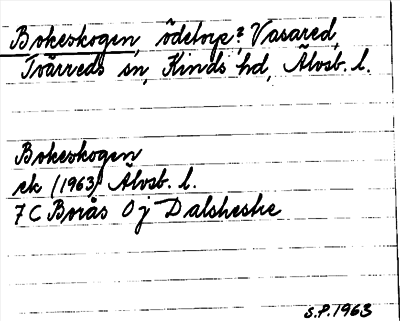 Bokeskogen, ödetorp?, Vasared,
Tvärreds sn, Kinds hd, Älvsb. l.
Bokeskogen
ek (1963) Älvsb. l.
7C Borås 0j Dalsheshe
S.P. 1963